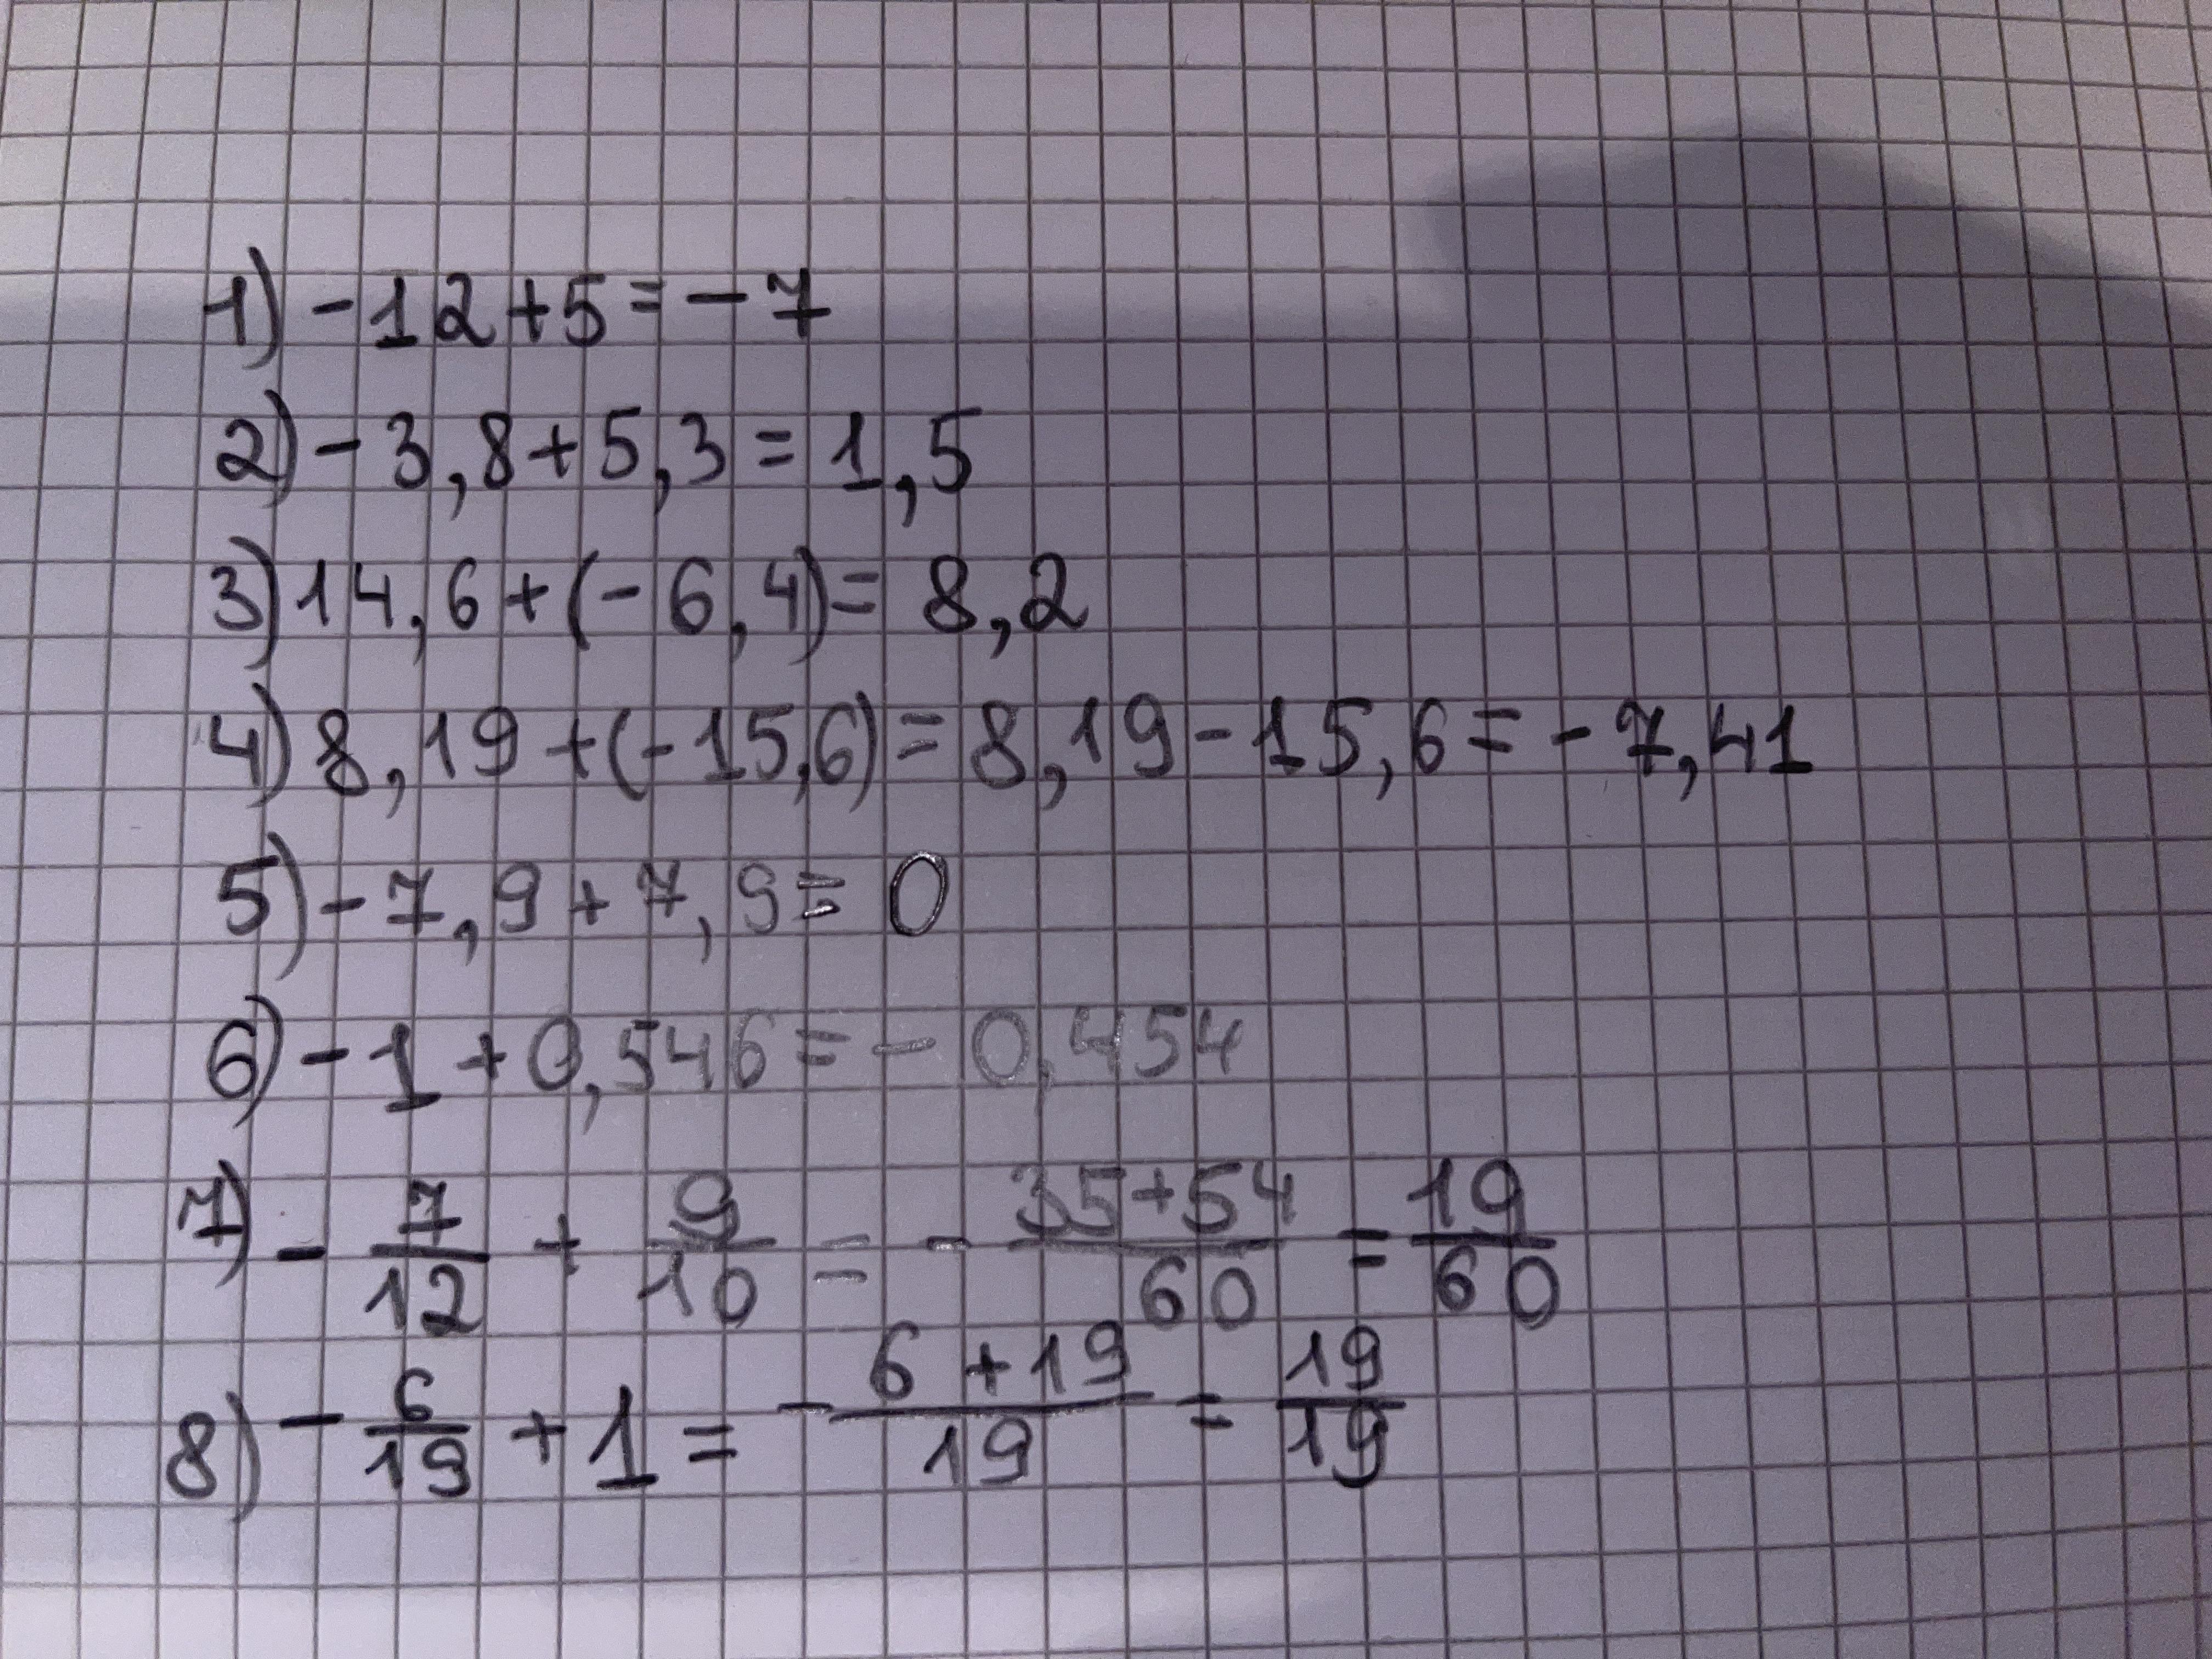 1) -12+5=-7
2) -3,8+5,3=1,5
3) 14,6+(-6,4)=8,2
4) 8,19+(-15,6)=8,19-15,6=-7,41
5) -7,9+7,9=0
6) -1+0,546=-0,454
7) -7/12 + 9/10 = -35+54/60 = 19/60
8) -6/19 + 1 = -6+19/19 = 19/19